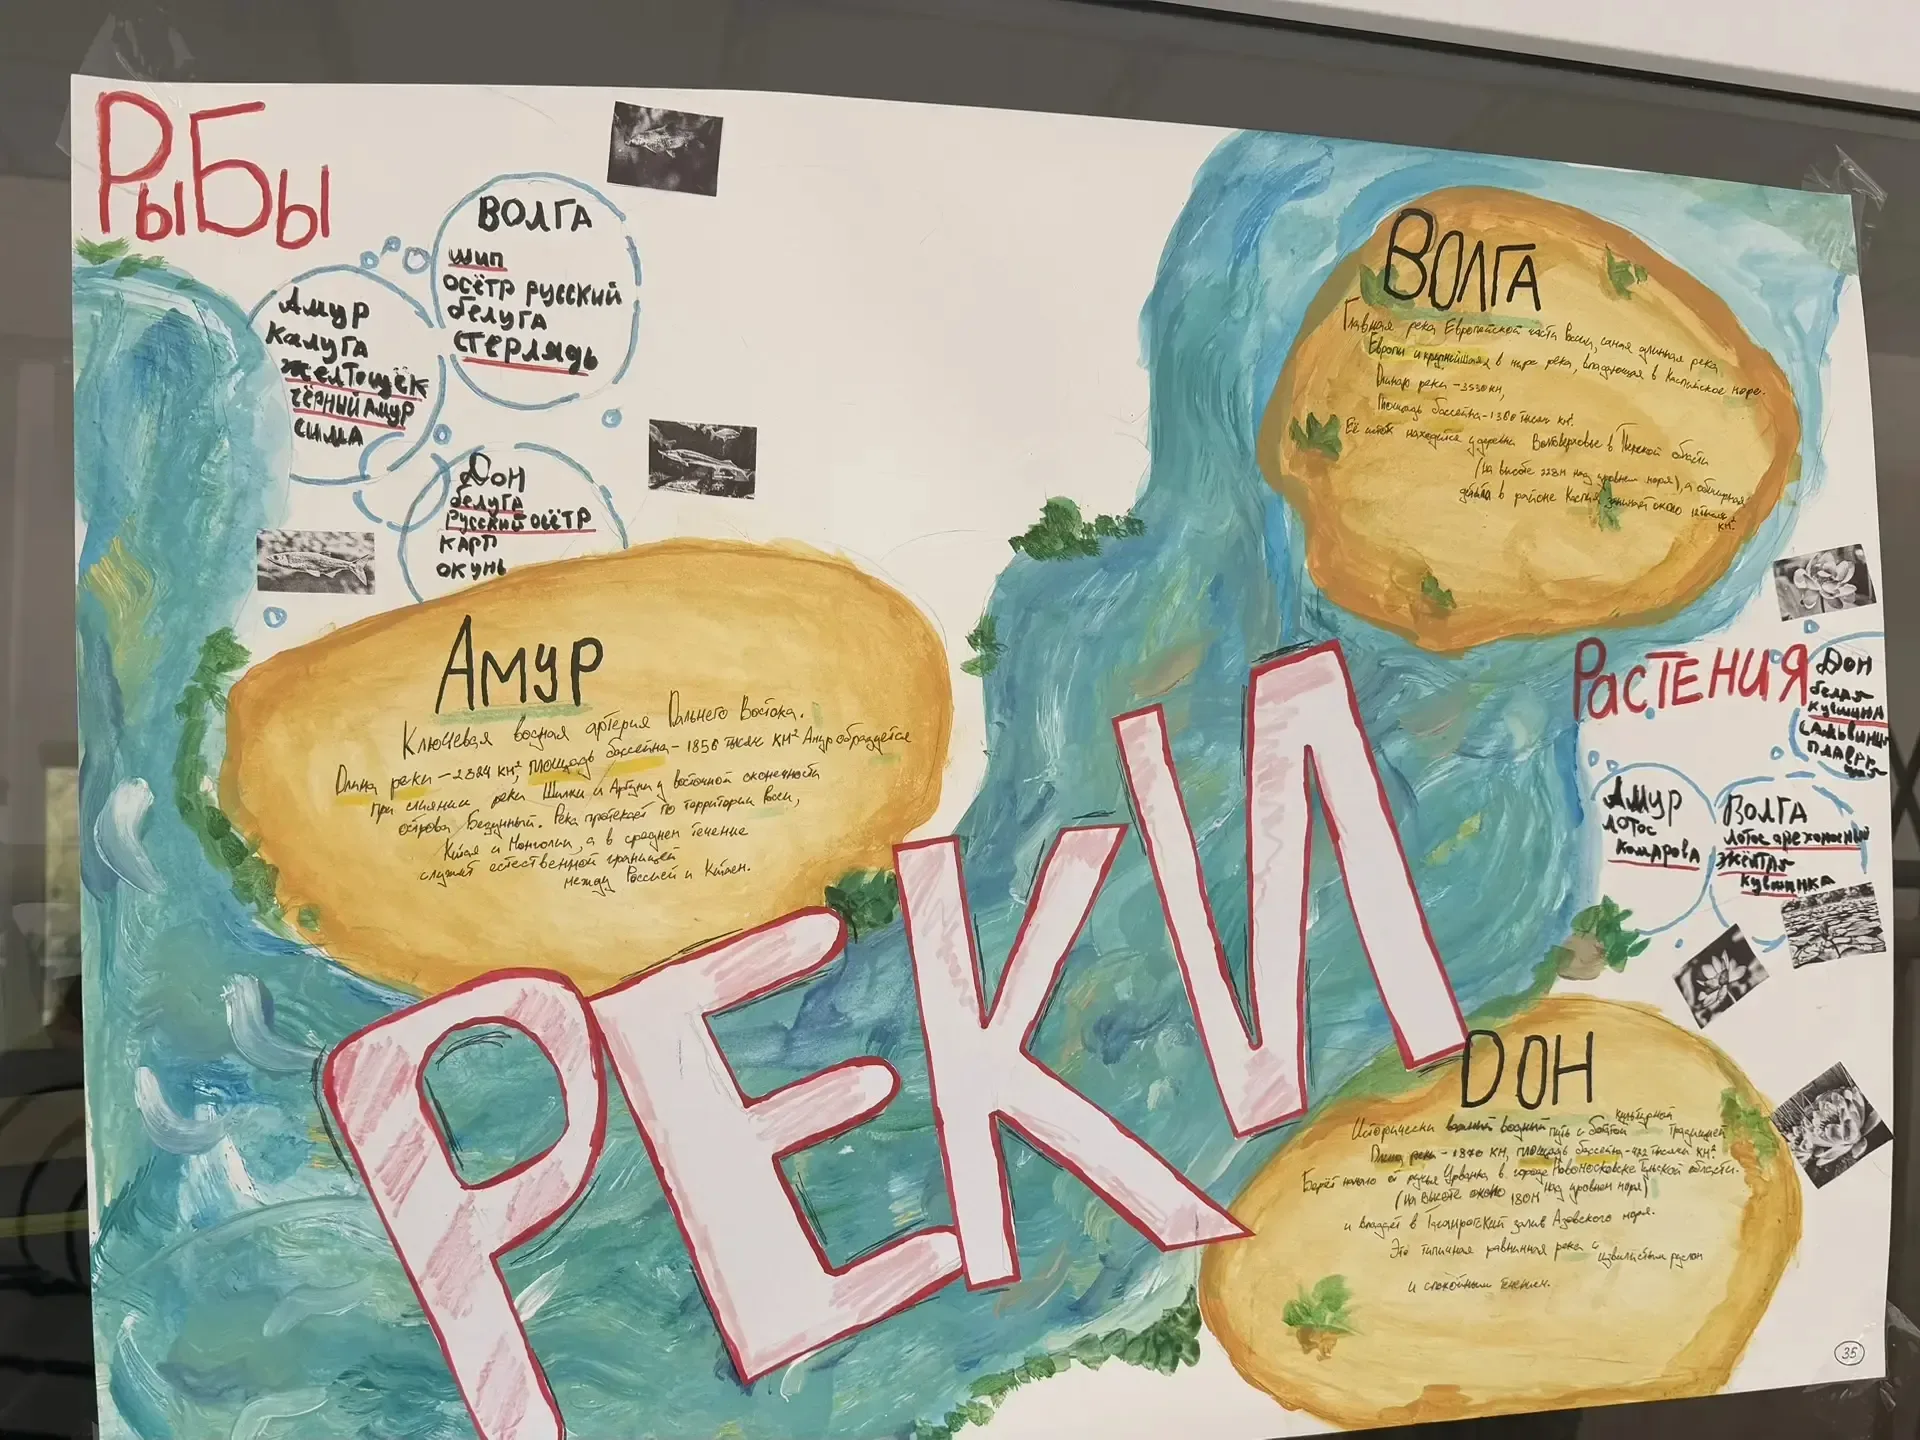 РыБы
ВОЛГА
шип
осётр русский
белуга
стерлядь
Амур
Калуга
желтощёк
чёрный амур
сима
Дон
белуга
русский осётр
карп
окунь
Амур
Ключевая водная артерия Дальнего Востока.
Длина реки - 2824 км², площадь бассейна - 1856 тысяч км² Амур образуется
при слиянии реки Шилки и Аргуни у восточной оконечности
острова Безумный. Река протекает по территории России,
Китая и Монголии, а в среднем течение
служит естественной границей
между Россией и Китаем.
ВОЛГА
Главная река Европейской части России, самая длинная река
Европы и крупнейшая в мире река, впадающая в Каспийское море.
Длинар реки - 3530 км,
Площадь бассейна - 1360 тысяч км².
Её исток находится у деревни Волговерховье в Тверской области
(на высоте 228 м над уровнем моря), а обширная
дельта в районе Каспия занимает около тысяч
км²
РЕКИ
РаСТЕНИЯ
Дон
белая
кувшинка
сальвиния
плаву
чая
Амур
лотос
комарова
Волга
лотос орехоносный
жёлтая
кувшинка
ДОН
Исторически важный водный путь с богатой культурной традицией
Длина реки - 1870 км, площадь бассейна - 422 тысячи км².
Берёт начало от ручья Урванка в городе Новомосковске Тульской области.
(на высоте около 180 м над уровнем моря)
и впадает в Таганрогский залив Азовского моря.
Это типичная равнинная река с извилистым руслом
и спокойным течением.
35